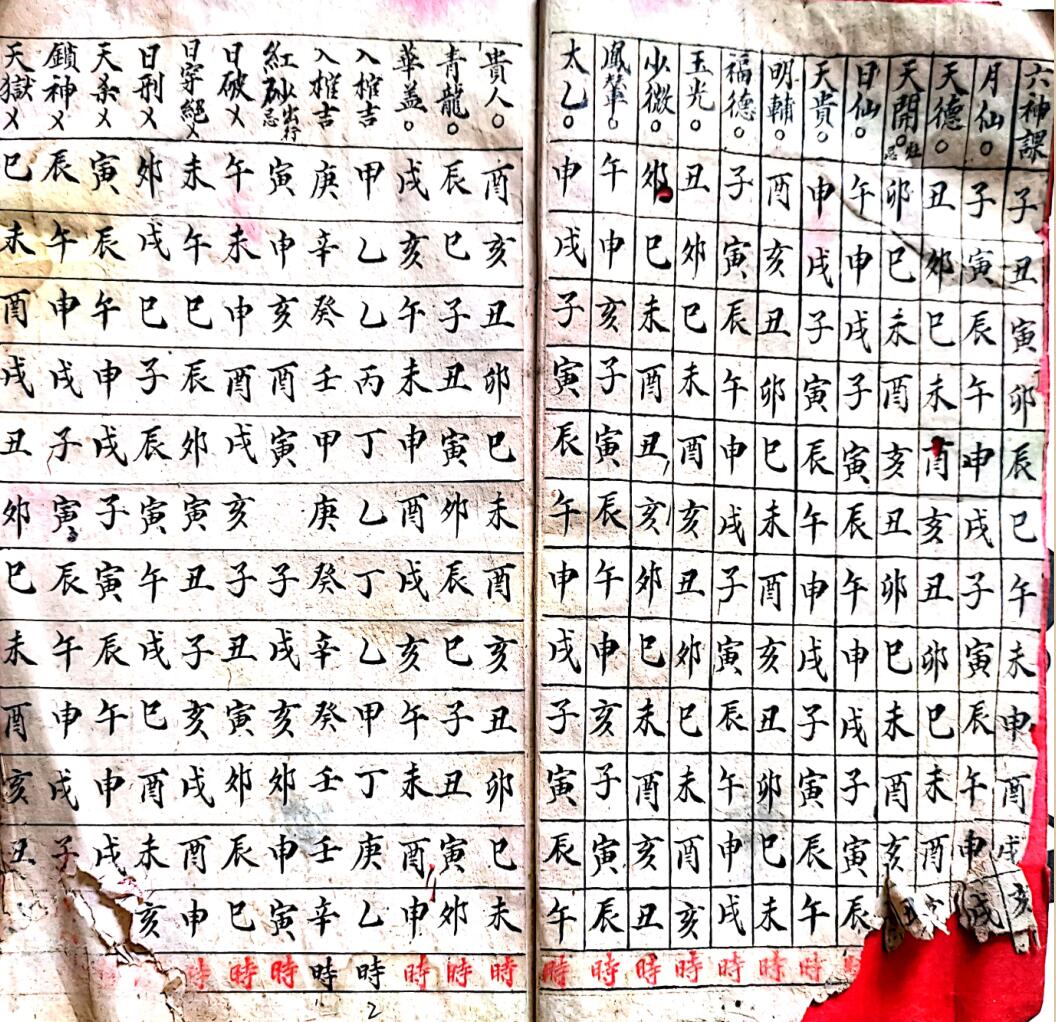 六神課子丑寅卯辰巳午未申酉戌亥
月仙○子寅辰午申戌子寅辰午申戌
天德○丑卯巳未酉亥丑卯巳未酉
天開○卯巳未酉亥丑卯巳未酉亥丑
日仙○午申戌子寅辰午申戌子寅辰
天貴○申戌子寅辰午申戌子寅辰午時
明輔○酉亥丑卯巳未酉亥丑卯巳未時
福德○子寅辰午申戌子寅辰午申戌時
玉光○丑卯巳未酉亥丑卯巳未酉亥時
少微○卯巳未酉丑亥卯巳未酉亥丑時
鳳輦○午申亥子寅辰午申亥子寅辰時
太乙○申戌子寅辰午申戌子寅辰午時
貴人○酉亥丑卯巳未酉亥丑卯巳未時
青龍○辰巳子丑寅卯辰巳子丑寅卯時
華益○戌亥午未申酉戌亥午未酉申時
入棺吉甲乙乙丙丁乙丁乙甲丁庚乙時
入棺吉庚辛癸壬甲庚癸辛癸壬壬辛時
紅砂出行忌寅申亥酉寅子戌亥卯申寅時
日破㐅午未申酉戌亥子丑寅卯辰巳時
日穿絕㐅未午巳辰卯寅丑子亥戌酉申時
日刑㐅卯戌巳子辰寅午戌巳酉未亥
天杀㐅寅辰午申戌子寅辰午申戌
鎖神㐅辰午申戌子寅辰午申戌子
天獄㐅巳未酉戌丑卯巳未酉亥丑
2